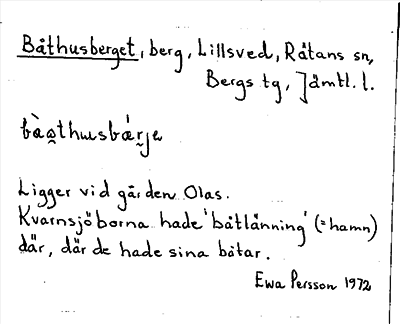 Båthusberget, berg, Lillsved, Råtans sn,
Bergs tg, Jämtl. l.
bào̯thusbǽr̥je
Ligger vid gården Olas.
Kvarnsjöborna hade 'båtlänning' (= hamn)
där, där de hade sina båtar.
Ewa Persson 1972